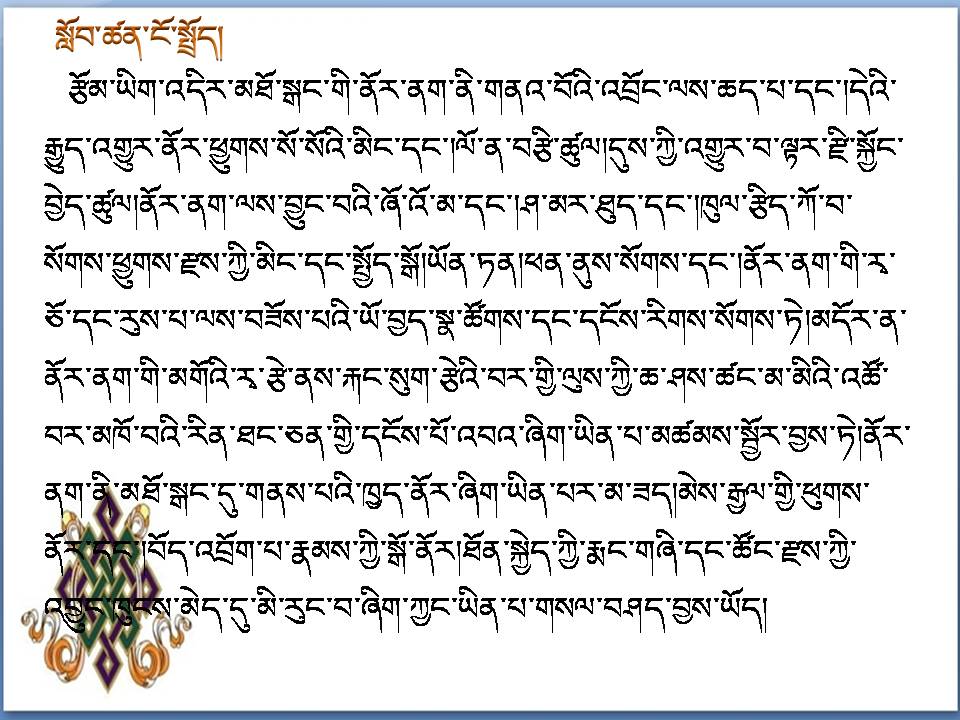 སློབ་ཚན་ངོ་སྤྲོད།
རྩོམ་ཡིག་འདིར་མཐོ་སྒང་གི་ནོར་ནག་ནི་གནའ་བོའི་འབྲོང་ལས་ཆད་པ་དང་།དེའི་
རྒྱུད་འགྱུར་ནོར་ཕྱུགས་སོ་སོའི་མིང་དང་།ལོ་ན་བརྩི་ཚུལ།དུས་ཀྱི་འགྱུར་བ་ལྟར་རྫི་སྐྱོང་
བྱེད་ཚུལ།ནོར་ནག་ལས་བྱུང་བའི་ཞོ་འོ་མ་དང་།ཤ་མར་ཐུད་དང་།ཁུལ་རྩིད་ཀོ་བ་
སོགས་ཕྱུགས་རྫས་ཀྱི་མིང་དང་སྤྱོད་སྒོ།ཡོན་ཏན།ཕན་ནུས་སོགས་དང་།ནོར་ནག་གི་རྭ་
ཅོ་དང་རུས་པ་ལས་བཟོས་པའི་ཡོ་བྱད་སྣ་ཚོགས་དང་དངོས་རིགས་སོགས་ཏེ།མདོར་ན་
ནོར་ནག་གི་མགོའི་རྭ་རྩེ་ནས་རྐང་སུག་རྩེའི་བར་གྱི་ལུས་ཀྱི་ཆ་ཤས་ཚང་མ་མིའི་འཚོ་
བར་མཁོ་བའི་རིན་ཐང་ཅན་གྱི་དངོས་པོ་འབའ་ཞིག་ཡིན་པ་མཚམས་སྦྱོར་བྱས་ཏེ།ནོར་
ནག་ནི་མཐོ་སྒང་དུ་གནས་པའི་ཁྱད་ནོར་ཞིག་ཡིན་པར་མ་ཟད།མེས་རྒྱལ་གྱི་ཕུགས་
ནོར་དང་།བོད་འབྲོག་པ་རྣམས་ཀྱི་སྒོ་ནོར།ཐོན་སྐྱེད་ཀྱི་རྨང་གཞི་དང་ཚོང་རྫས་ཀྱི་
འབྱུང་ཁུངས་མེད་དུ་མི་རུང་བ་ཞིག་ཀྱང་ཡིན་པ་གསལ་བཤད་བྱས་ཡོད།